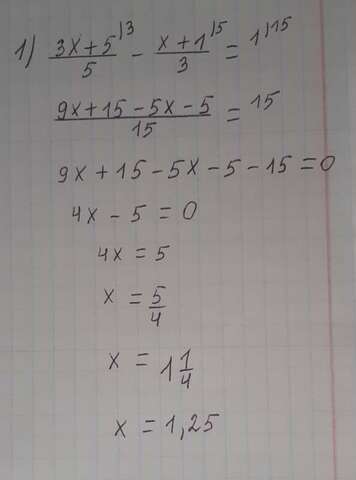 1) (3x+5)/5 |3 - (x+1)/3 |5 = 1 |15
(9x+15-5x-5)/15 = 15
9x+15-5x-5-15=0
4x-5=0
4x=5
x=5/4
x=1 1/4
x=1,25